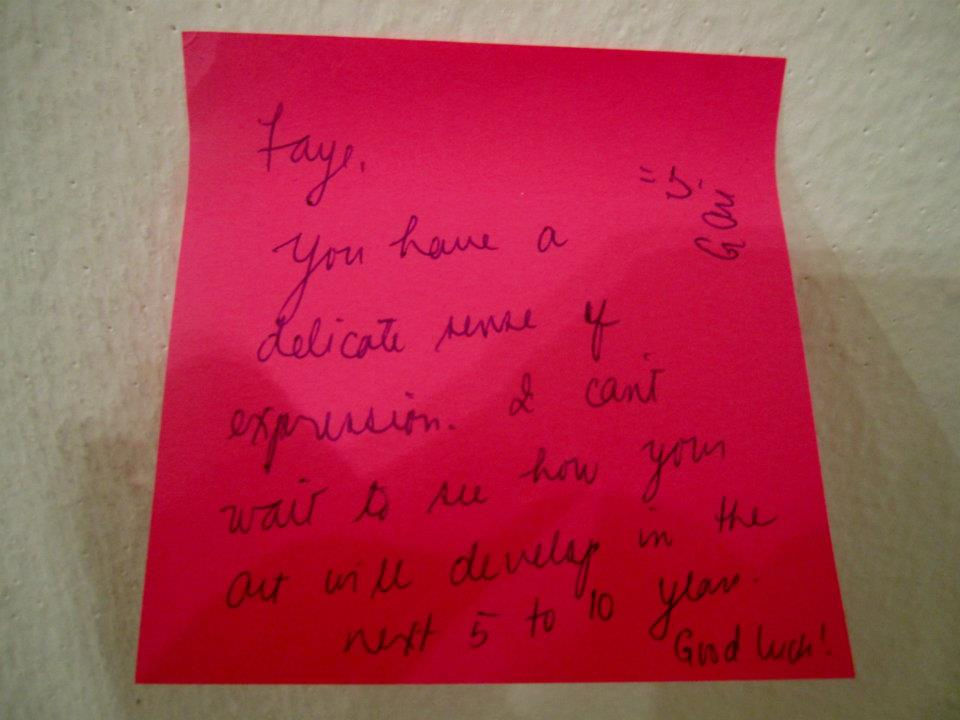 Faye,
You have a
delicate sense of
expression. I can't
wait to see how your
art will develop in the
next 5 to 10 years.
Good luck!